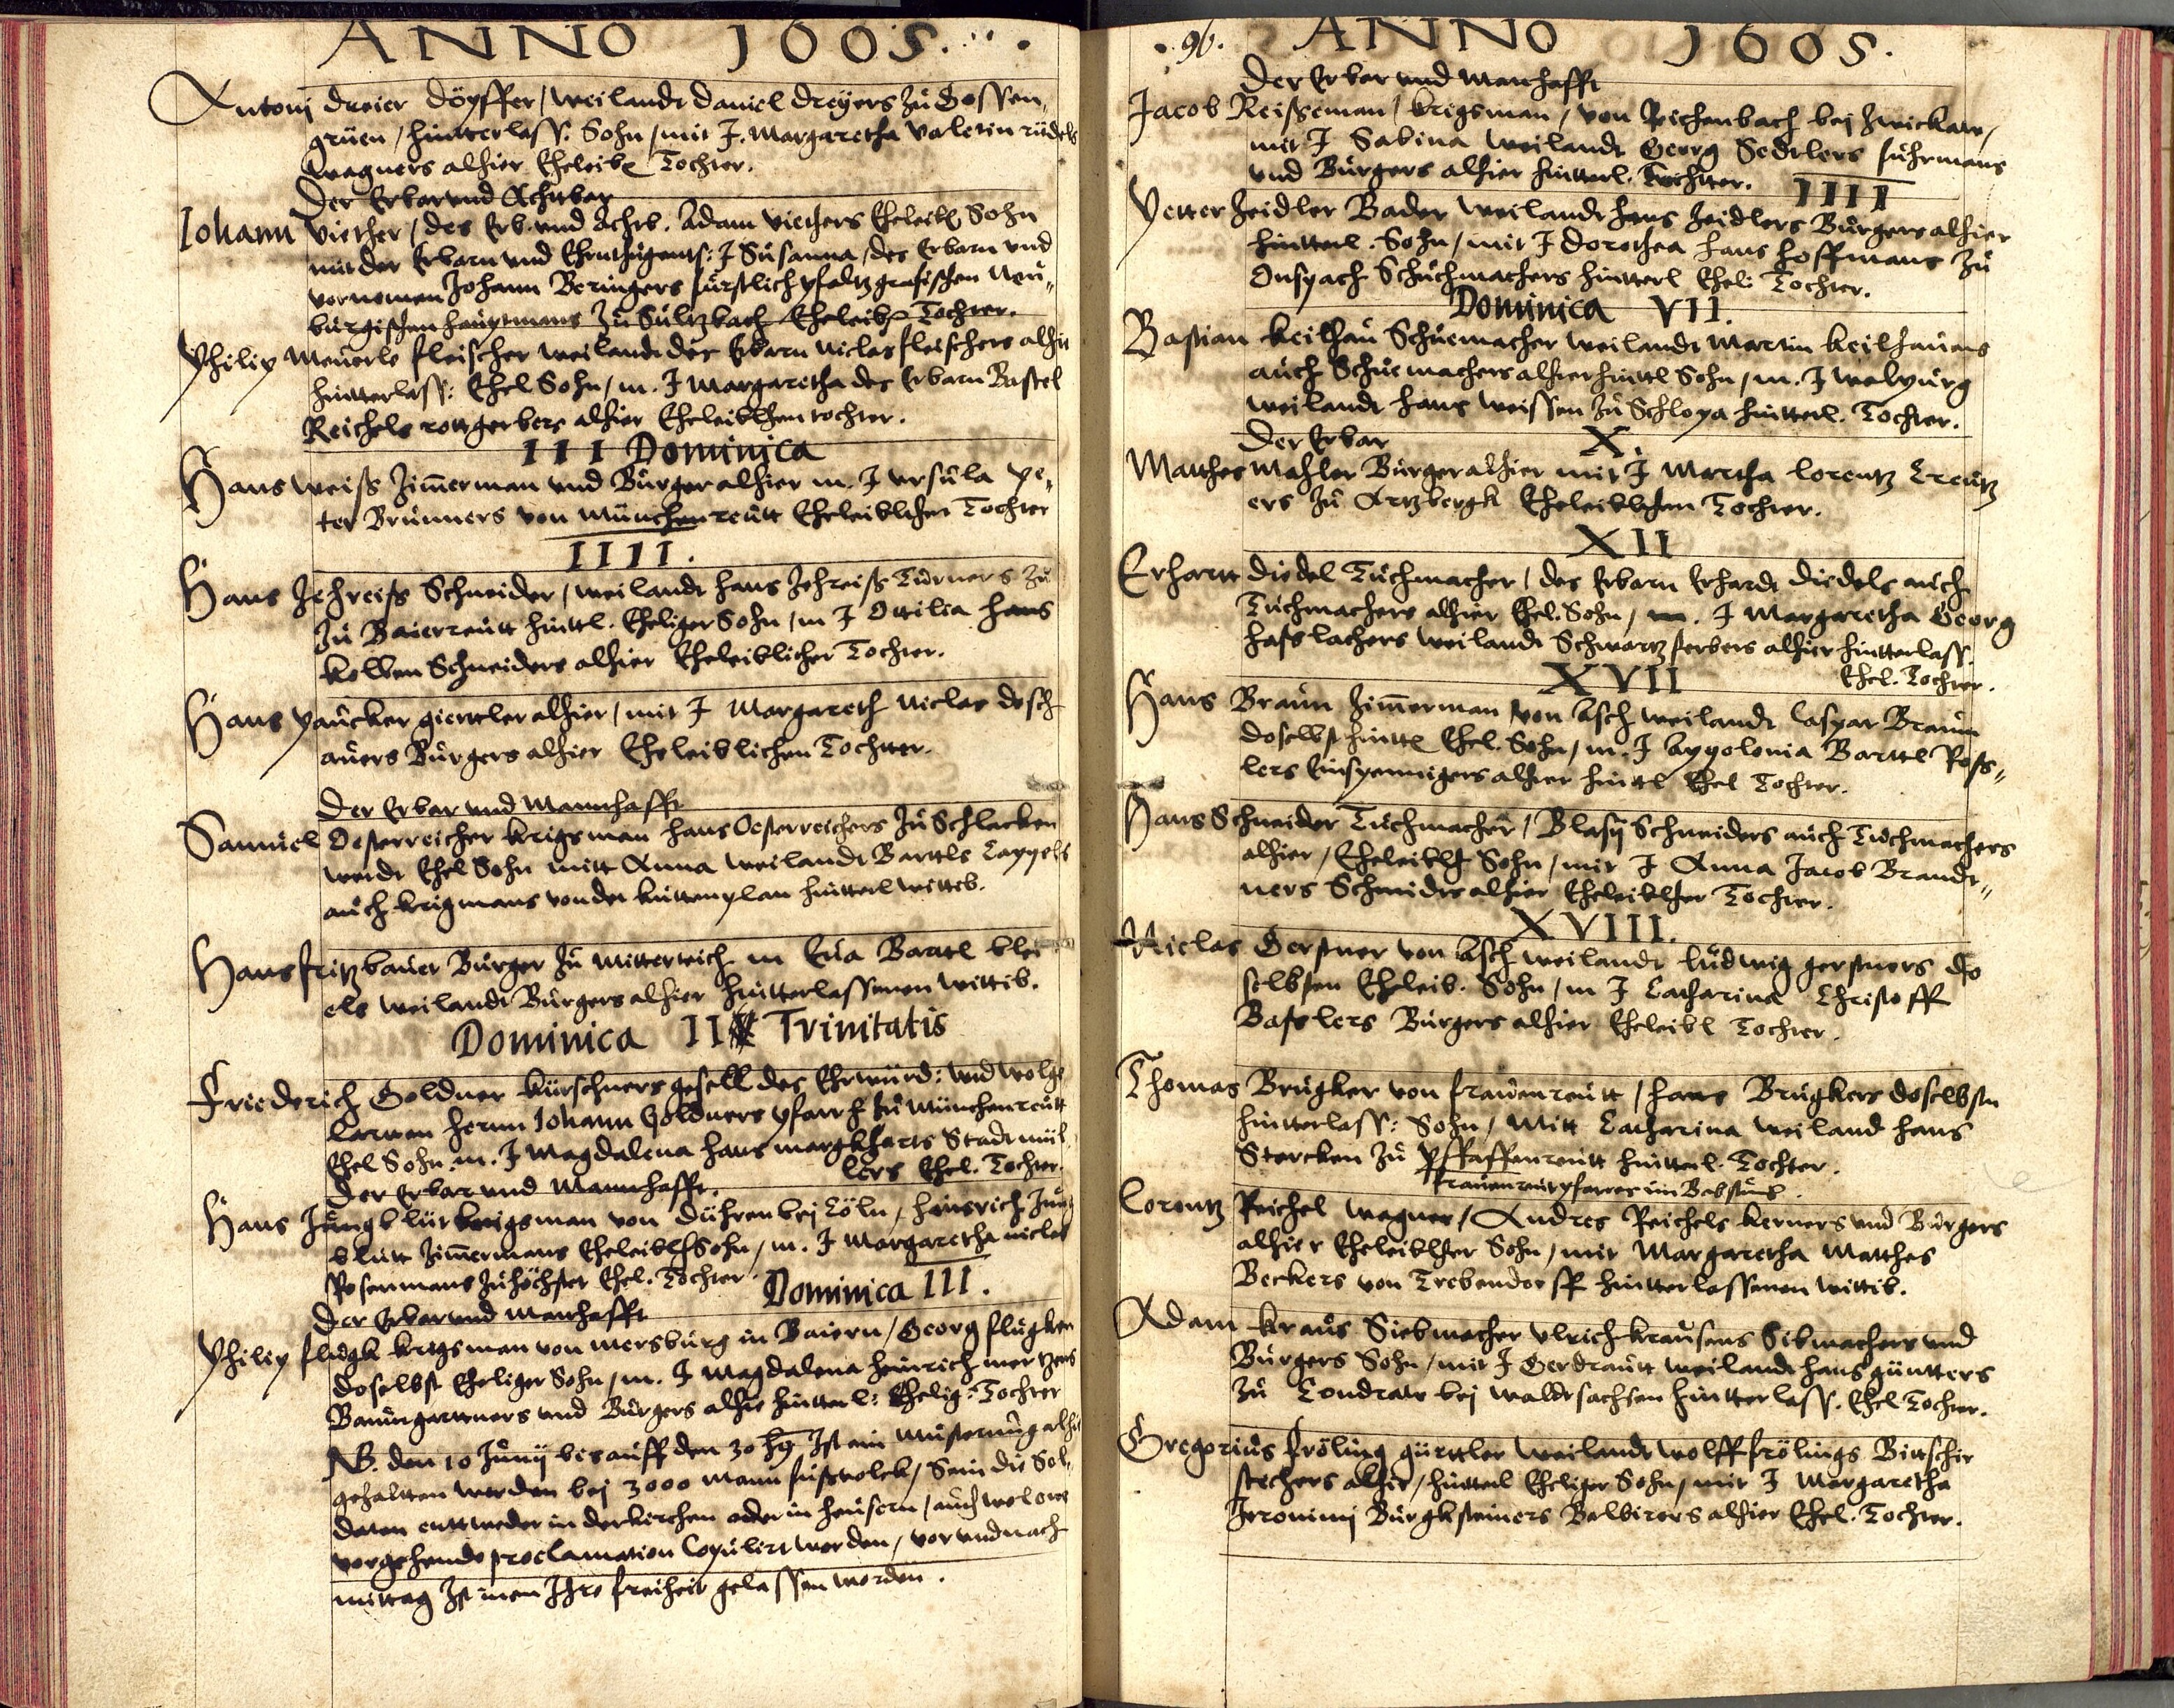 ANNO 1605.
Antonj Dreier döpffer / weilandt Daniel Dreÿers Zu Gossen
grüen / hintterlass. Sohn / mit J. Margaretha Valetin rüdels
wagners alhier Eheleib. Tochter.
Der Erbar und Achtbar
Johann Viether / des Erb. und Achtb. Adam Viethers Eheleib. Sohn
mit der Erbarn und Ehrnthugents: J Susanna / des Erbarn und
vornemen Johann Beringers fürstlich pfaltzgrafischen Neu-
burgischen hauptmans Zu Sultzbach Eheleib. Tochter.
Philip Meuerle fleischer weilandt des Erbarn Niclas fleischers alhie
hintterlass: Ehel Sohn / m. J Margaretha des Erbarn Bastel
Reichels rottgerbers alhier Eheleiblichen tochter.
III Dominica
Hans Weiss Zimmerman und Burger alhier m. J Ursula Pe-
ter Brunners von Münchenreutt Eheleiblichen Tochter
IIII.
Hans Jehreiss Schneider / weilandt Hans Jehreiss Turners Zu
Zu Baierreutt hinttl. Eheliger Sohn / m J Ottilia Hans
Kolben Schneiders alhier Eheleiblicher Tochter.
Hans Paucker gierttler alhier / mit J Margareth Niclas Desch
auers Burgers alhier Eheleiblichen Tochtter.
Der Erbar und Mannhafft
Samuel Oesterreicher Krigsman Hans Oesterreichers Zu Schlacken
werdt Ehel Sohn mitt Anna weilandt Barttls Cappels
auch Krigmans von der Kuttenplan hintterl wittib.
Hans Fritz bauer Burger Zu Mitterteich m Eva Barttl
els weilandt Burgers alhier hintterlassenen wittib.
Dominica II Trinitatis
Friederich Goldner Kürschners gesell des Ehrwürd: und wolge
larten herrn Johann Goldners pfarrh Zu Münchenreutt
Ehel Sohn. m. J Magdalena Hans Margkharts Stadtmül
lers Ehel. Tochter.
Der Erbar und Mannhafft.
Hans Jungblut Krigsman von Dühren bej Cöln / Heinrich Jung
blutt Zimmermans Eheleibl Sohn / m. J Margaretha Niclas
Rosenmans Zu höchster Ehel. Tochter
Dominica III.
Der Erbar und Manhafft
Philip Flugk Krigsman von Mersburg in Baiern / Georg Flugken
doselbst Eheliger Sohn / m. J Magdalena Heinrich Mertzens
Baumgarttners und Burgers alhie hintterl: Ehelig: Tochter
NB. den 10 Junij bis auff den 30 Ist ein Musterung alhie
gehaltten worden bej 3000 Mann fussvolck / Sein die Sol-
daten enttweder in der Kirchen oder in heusern / auch wol one
vorgehende proclamation Copulirt worden / vor und nach
mittag Ist inen Ihre freiheit gelassen worden.
96. ANNO 1605.
Der Erbar und Manhafft
Jacob Reisseman / Krigsman / von Reichenbach bej Zwickaw /
mit J Sabina weilandt Georg Sedtlers fuhrmans
und Burgers alhier hintterl. Tochtter.
IIII
Petter Zeidler Bader weilandt Hans Zeidlers Burgers alhier
hintterl. Sohn / mit J Dorothea Hans Hoffmans Zu
Onspach Schuchmachers hintterl Ehel: Tochter.
Dominica VII.
Bastian Keilhau Schuemacher weilandt Martin Keilhauens
auch Schuemachers alhier hinttl Sohn / m. J Walpurg
weilandt Hans Weissen Zu Schlopa hintterl. Tochter.
Der Erbar
X.
Matthes Mahler Burger alhier mit J Martha Lorentz Creutz
ers Zu Artzbergk Eheleiblichen Tochter.
XII
Erhartt Diedel Tuchmacher / des Erbarn Erhardt Diedels auch
Tuchmachers alhier Ehel. Sohn / m. J Margaretha Georg
Haslachers weilandt Schwartzferbers alhier hintterlass.
Ehel. Tochter.
XVII
Hans Braun Zimmerman von Asch weilandt Caspar Braun
doselbst hinttl Ehel. Sohn / m. J Appolonia Barttl Ross-
lers Einspennigers alhier hinttl Ehel Tochter.
Hans Schneider Tuchmacher / Blasÿ Schneiders auch Tuchmachers
alhier / Eheleibl Sohn / mit J Anna Jacob Brandt-
ners Schmidts alhier Eheleiblicher Tochter.
XVIII.
Niclas Gerstner von Asch weilandt Ludwig Gerstners do
selbsten Eheleib. Sohn / m J Catharina Christoff
Basslers Burgers alhier Eheleibl Tochter.
Thomas Brugker von Frawenreutt / Hans Brugkers doselbsten
hintterlass: Sohn / Mitt Catharina weiland Hans
Starcken Zu Pffaffenreutt hintterl. Tochter.
Frauenreut pfarres im Babstumb.
Lorentz Reichel wagner / Andres Reichels Kerners und Burgers
alhier Eheleiblicher Sohn / mit Margaretha Matthes
Beckers von Trebendorff hintterlassenen wittib.
Adam Kraus Siebmacher Ulrich Krausens Sibmachers und
Burgers Sohn / mit J Gerdrautt weilandt Hans Güntters
Zu Condraw bej Waldtsachsen hintterlass. Ehel. Tochter.
Gregorius Fröling gürttler weilandt Wolff Frölings Bittschir
stechers alhier / hintterl Eheliger Sohn / mit J Margaretha
Jeronimj Burgksteiners Balbirers alhier Ehel. Tochter.